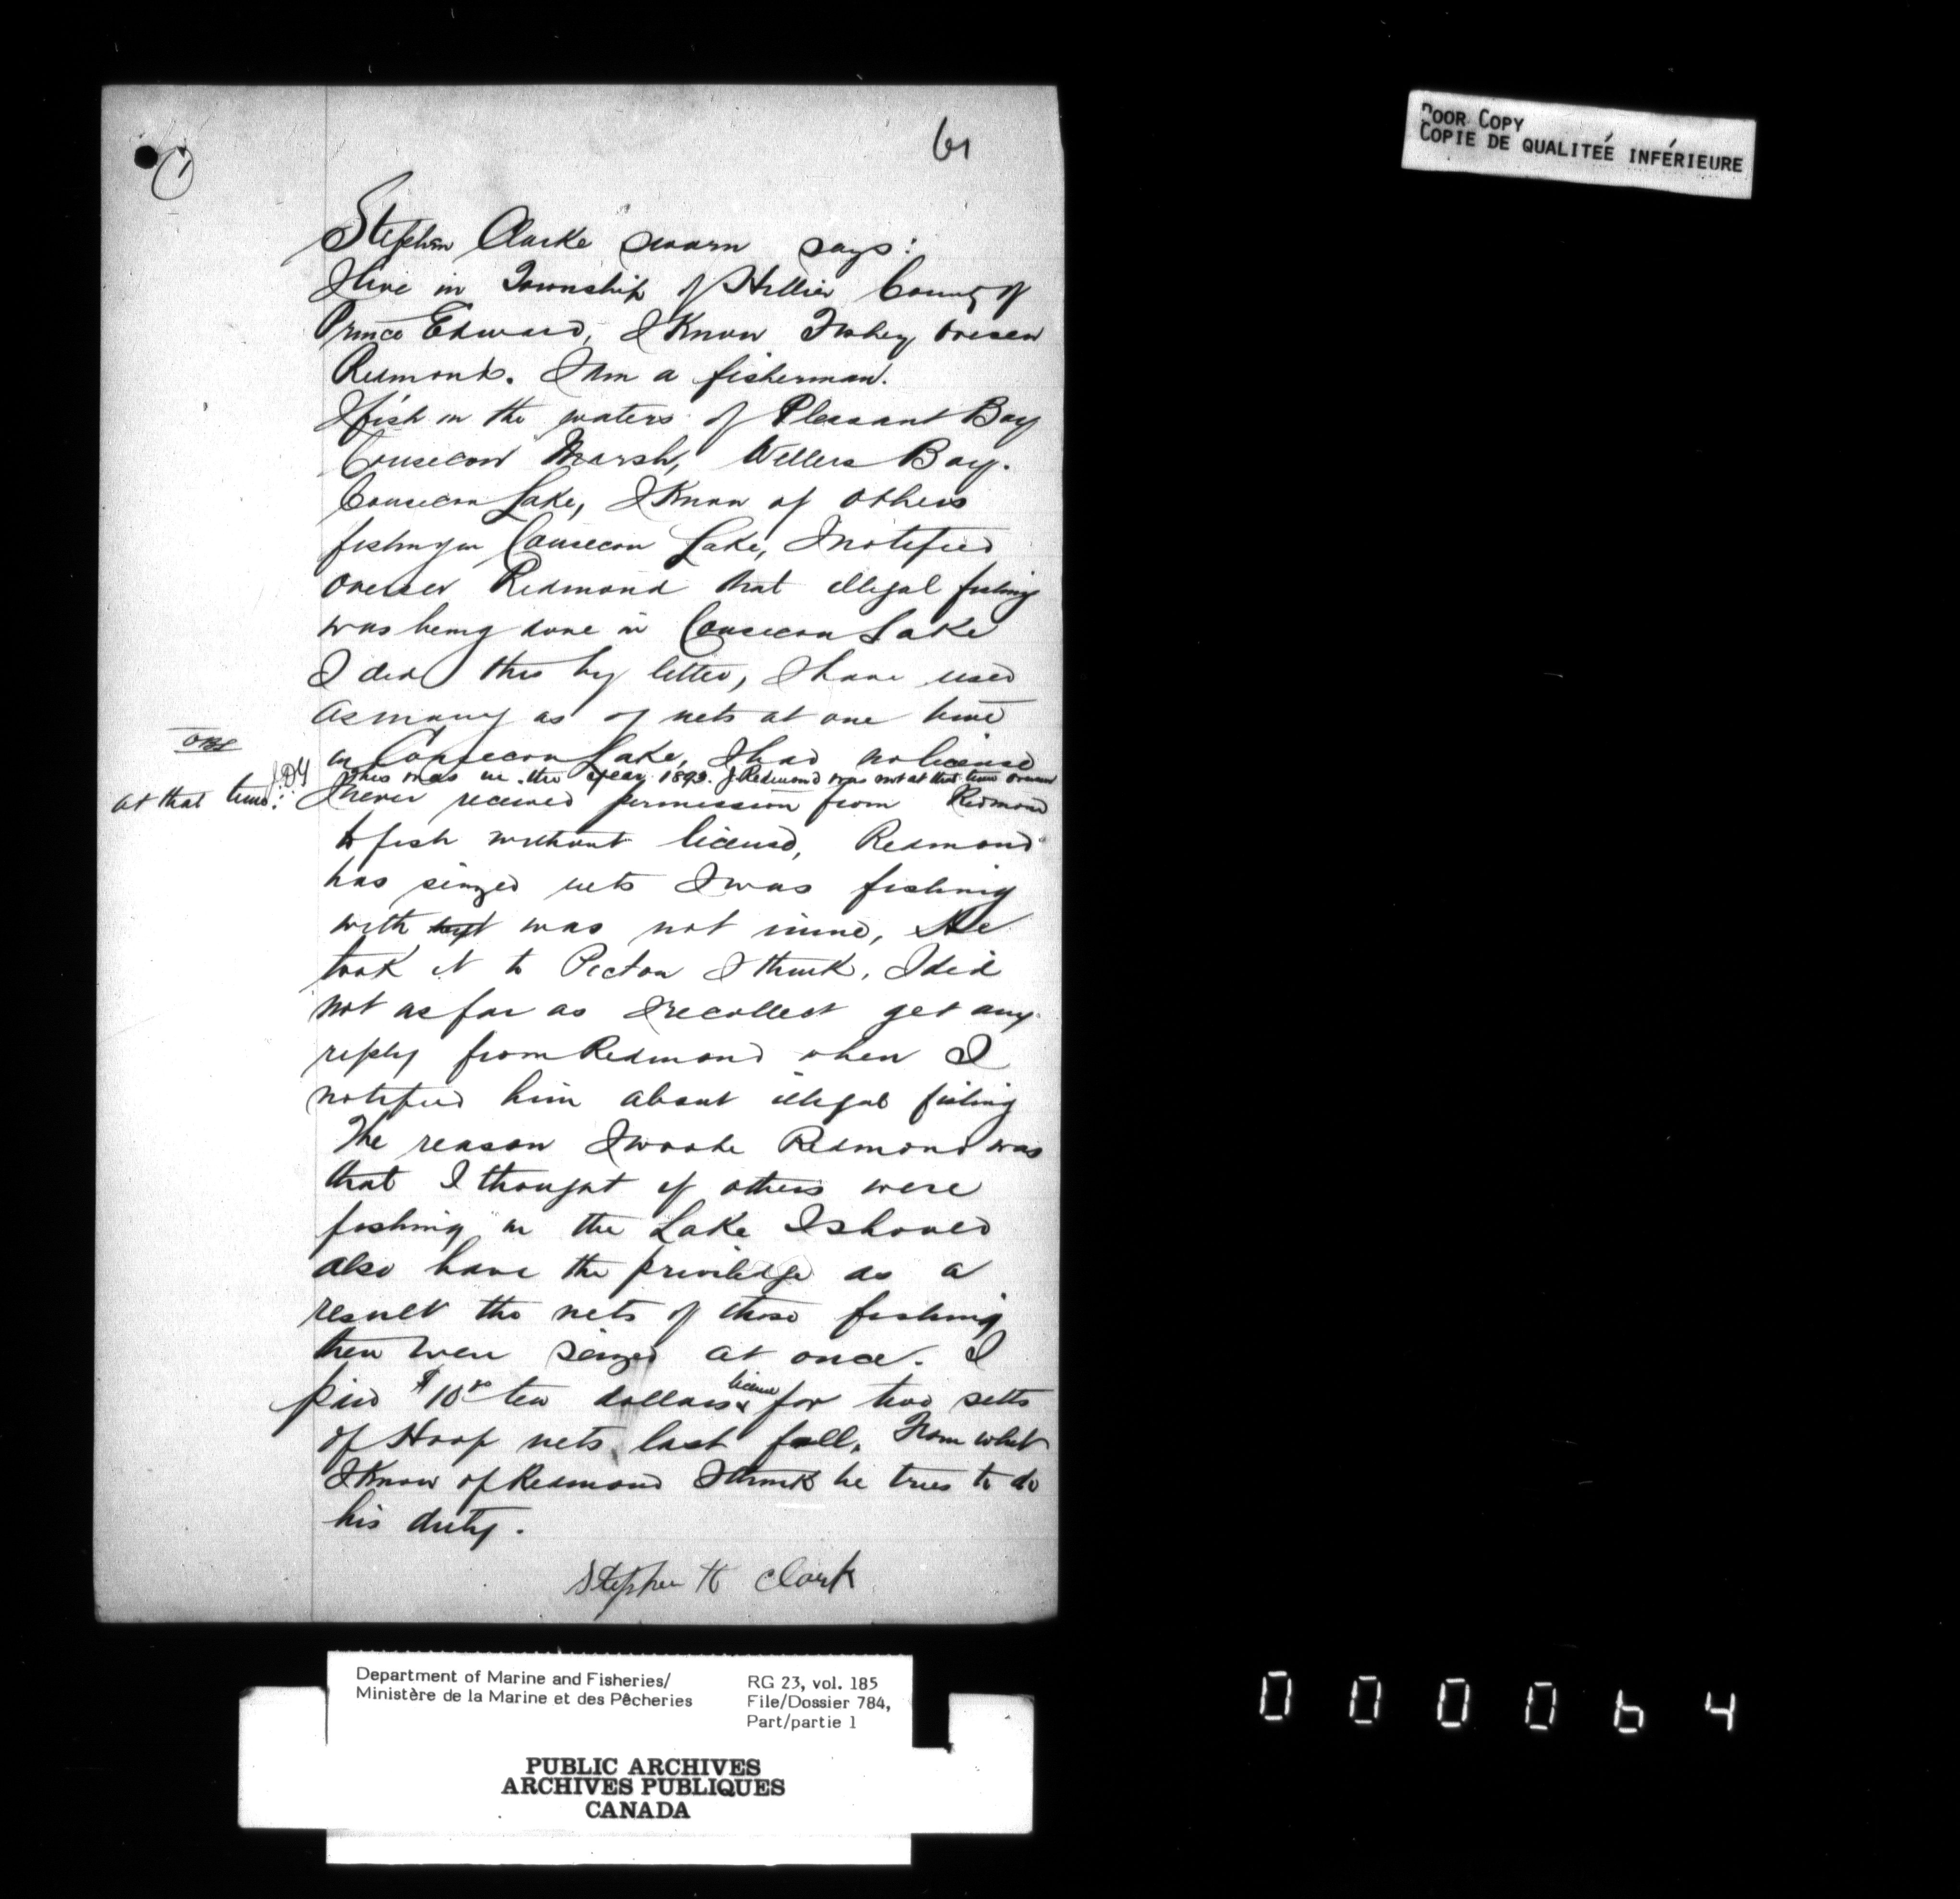 61
Stephen Clarke sworn says:
I live in Township of Hillier County of
Prince Edward, I Know Fishery Overseer
Redmond. I Am a fisherman.
I fish in the waters of Pleasant Bay
Consecon Marsh, Wellers Bay.
Consecon Lake, I Know of others
fishing in Consecon Lake, I notified
Overseer Redmond that illegal fishing
was being done in Consecon Lake
I did this by letter, I have used
as many as of nets at one time
in Consecon Lake, I had no license
This was in the year 1893. J Redmond was not at that time overseer
at that time: I never received permission from Redmond
to fish without license, Redmond
has seized nets I was fishing
with was not mine, He
took it to Picton I think. I did
not as far as I recollect get any
reply from Redmond when I
notified him about illegal fishing
The reason I wrote Redmond was
that I thought if others were
fishing in the Lake I should
also have the priviledge as a
result the nets of those fishing
then were seized at once. I
paid $10 00 ten dollars license for two setts
of Hoop nets last fall. From what
I Know of Redmond I think he tries to do
his duty.
Stephen H Clark
POOR COPY
COPIE DE QUALITEÉ INFÉRIEURE
Department of Marine and Fisheries/
Ministère de la Marine et des Pêcheries
RG 23, vol. 185
File/Dossier 784,
Part/partie 1
PUBLIC ARCHIVES
ARCHIVES PUBLIQUES
CANADA
000064